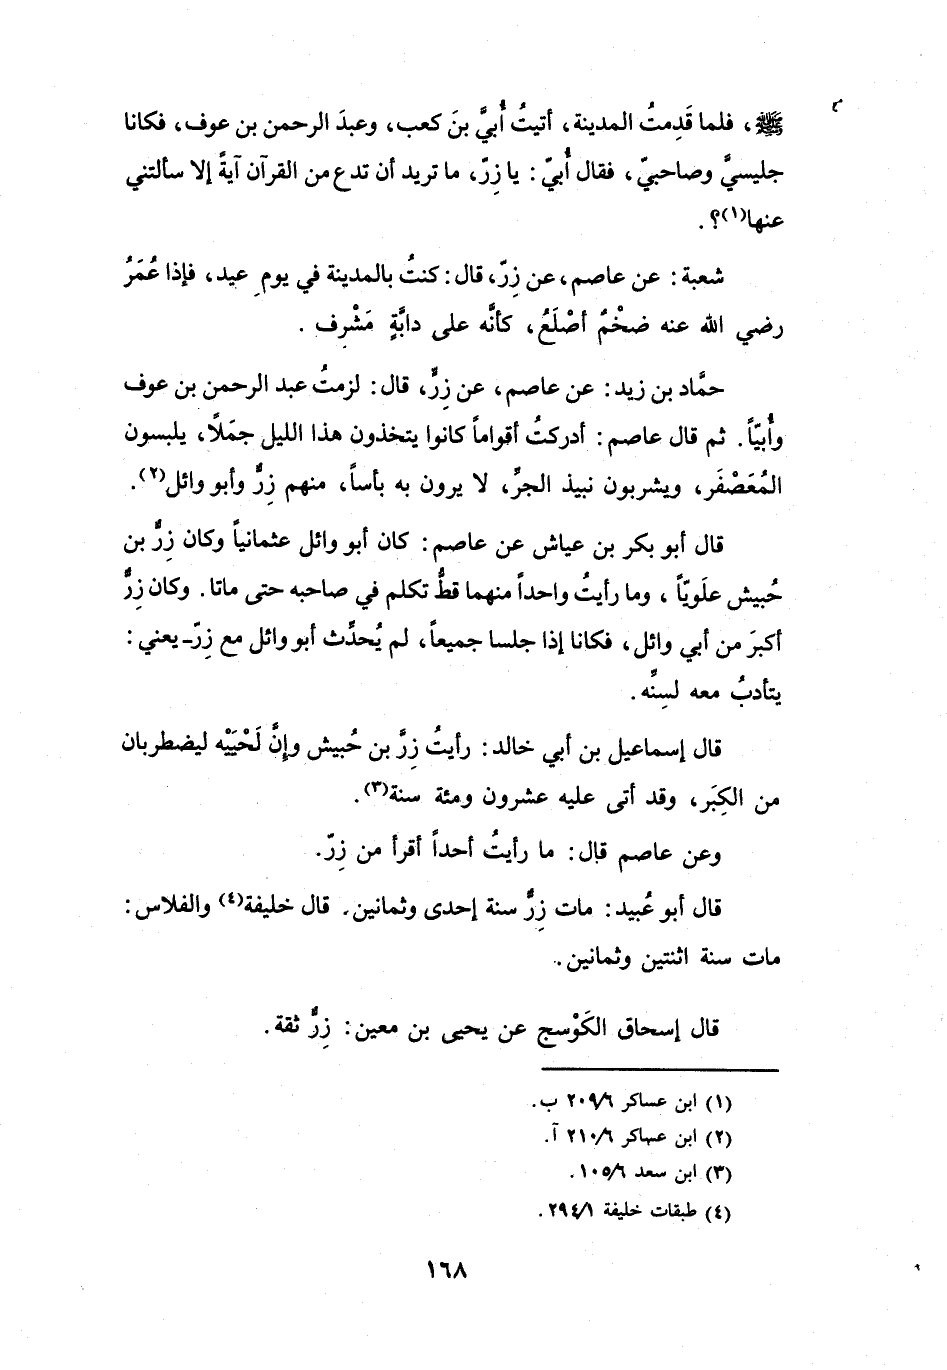 ﷺ، فلما قَدِمتُ المدينة، أتيتُ أُبيَّ بنَ كعب، وعبدَ الرحمن بن عوف، فكانا
جليسيَّ وصاحبيّ، فقال أُبيّ: يا زِرّ، ما تريد أن تدع من القرآن آيةً إلا سألتني
عنها(١)؟.
شعبة: عن عاصم، عن زِرّ، قال: كنتُ بالمدينة في يومِ عيد، فإذا عُمَرُ
رضي الله عنه ضخْمٌ أصْلَعُ، كأنَّه على دابَّةٍ مَشْرِف.
حمَّاد بن زيد: عن عاصم، عن زِرٍّ، قال: لزمتُ عبد الرحمن بن عوف
وأُبيّاً. ثم قال عاصم: أدركتُ أقواماً كانوا يتخذون هذا الليل جمَلًا، يلبسون
المُعَصْفَر، ويشربون نبيذ الجرِّ، لا يرون به بأساً، منهم زِرٌّ وأبو وائل(٢).
قال أبو بكر بن عياش عن عاصم: كان أبو وائل عثمانياً وكان زِرُّ بن
حُبيش علَويّاً، وما رأيتُ واحداً منهما قطُّ تكلم في صاحبه حتى ماتا. وكان زِرٌّ
أكبرَ من أبي وائل، فكانا إذا جلسا جميعاً، لم يُحدِّث أبو وائل مع زِرّ ـ يعني:
يتأدبُ معه لسِنِّه.
قال إسماعيل بن أبي خالد: رأيتُ زِرَّ بن حُبيش وإنَّ لَحْيَيْه ليضطربان
من الكِبَر، وقد أتى عليه عشرون ومئة سنة(٣).
وعن عاصم قال: ما رأيتُ أحداً أقرأ من زِرّ.
قال أبو عُبيد: مات زِرٌّ سنة إحدى وثمانين. قال خليفة(٤) والفلاس:
مات سنة اثنتين وثمانين.
قال إسحاق الكَوْسج عن يحيى بن معين: زِرٌّ ثقة.
(١) ابن عساكر ٢٠٩/٦ ب.
(٢) ابن عساكر ٢١٠/٦ آ.
(٣) ابن سعد ١٠٥/٦.
(٤) طبقات خليفة ٢٩٤/١.
١٦٨